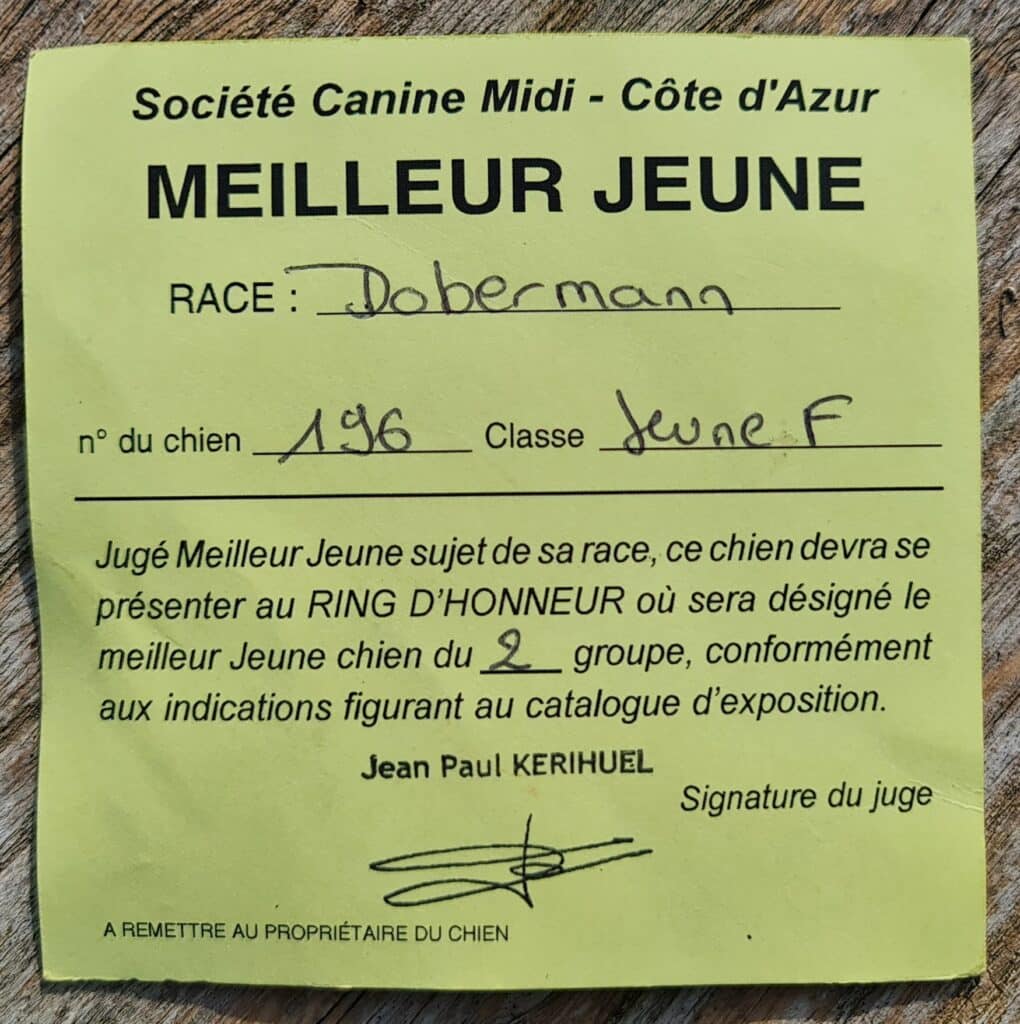 Société Canine Midi - Côte d'Azur
MEILLEUR JEUNE
RACE : Dobermann
n° du chien 196 Classe Jeune F
Jugé Meilleur Jeune sujet de sa race, ce chien devra se
présenter au RING D'HONNEUR où sera désigné le
meilleur Jeune chien du 2 groupe, conformément
aux indications figurant au catalogue d'exposition.
Jean Paul KERIHUEL
Signature du juge
A REMETTRE AU PROPRIÉTAIRE DU CHIEN